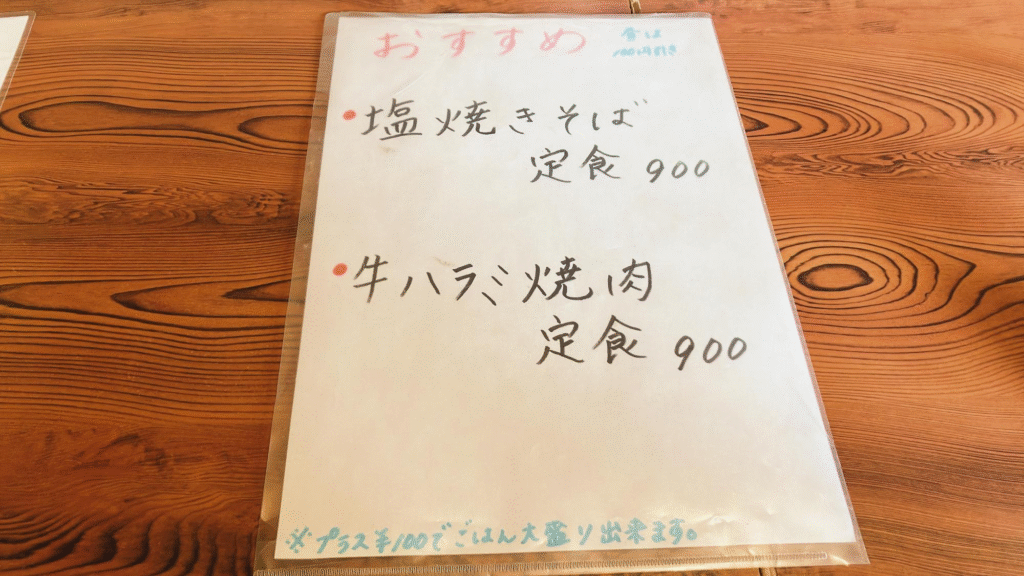 おすすめ
100円引き
●塩焼きそば
定食 900
●牛ハラミ焼肉
定食 900
※プラス¥100でごはん大盛り出来ます。